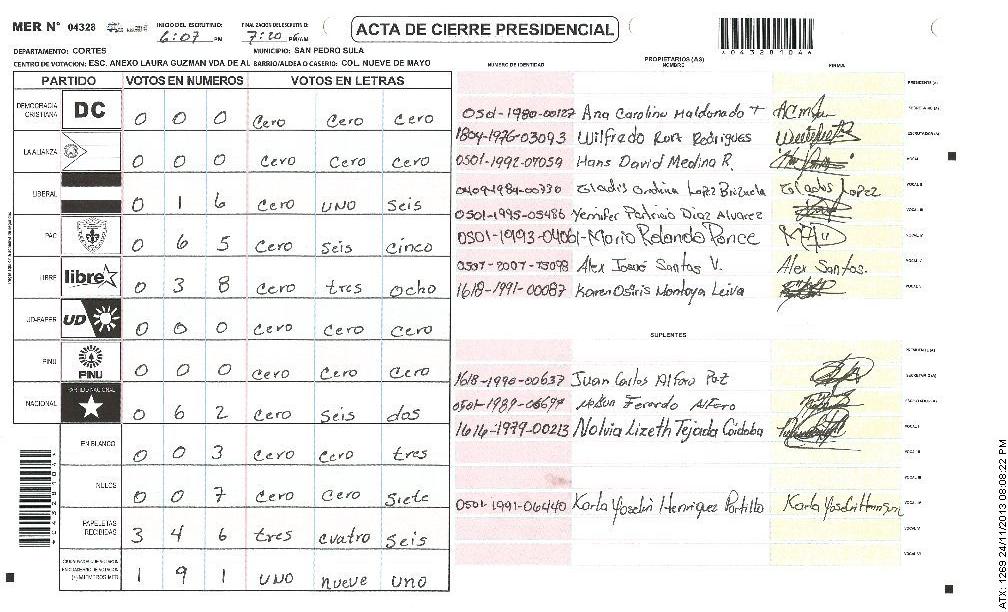 MER Nº 04328 INICIO DEL ESCRUTINIO: 6:07 PM FINALIZACION DEL ESCRUTINIO: 7:20 PM/AM
ACTA DE CIERRE PRESIDENCIAL
043281046
DEPARTAMENTO: CORTES MUNICIPIO: SAN PEDRO SULA
CENTRO DE VOTACION: ESC. ANEXO LAURA GUZMAN VDA DE AL BARRIO/ALDEA O CASERIO: COL. NUEVE DE MAYO
PARTIDO VOTOS EN NUMEROS VOTOS EN LETRAS
DEMOCRACIA CRISTIANA DC 0 0 0 Cero Cero Cero
LA ALIANZA 0 0 0 Cero Cero Cero
LIBERAL 0 1 6 Cero UNO Seis
PAC 0 6 5 Cero Seis Cinco
LIBRE libre 0 3 8 Cero tres ocho
UD-FAPER UD 0 0 0 Cero Cero Cero
PINU PINU 0 0 0 Cero Cero Cero
NACIONAL PARTIDO NACIONAL 0 6 2 Cero Seis dos
EN BLANCO 0 0 3 Cero Cero tres
NULOS 0 0 7 Cero Cero Siete
PAPELETAS RECIBIDAS 3 4 6 tres cuatro Seis
(+) MIEMBROS MER 1 9 1 UNO nueve uno
NUMERO DE IDENTIDAD PROPIETARIOS (AS) NOMBRE FIRMA
PRESIDENTE (A)
0501-1980-00127 Ana Carolina Maldonado SECRETARIO (A)
1804-1976-03093 Wilfredo Rodrigues ESCRUTADOR (A)
0501-1992-07059 Hans David Medina R. VOCAL I
Gladis Lopez Gladis Lopez VOCAL II
0501-1995-05486 Yennifer Patricia Diaz Alvarez VOCAL III
Mario Rolando Ponce VOCAL IV
Alex Josué Santos V. Alex Santos. VOCAL V
1618-1991-00087 Karen Osiris Montoya Leiva
SUPLENTES
PRESIDENTE (A)
1618-1990-00637 Juan Carlos Alfaro Paz SECRETARIO (A)
Alfaro ESCRUTADOR (A)
1614-1979-00213 Nolvia Lizeth Tejada Cordoba VOCAL I
VOCAL II
VOCAL III
0501-1991-06440 Karla Yoselin Henriquez Portillo Karla VOCAL IV
VOCAL V
VOCAL VI
ATX: 1269 24/11/2013 08:08:22 PM